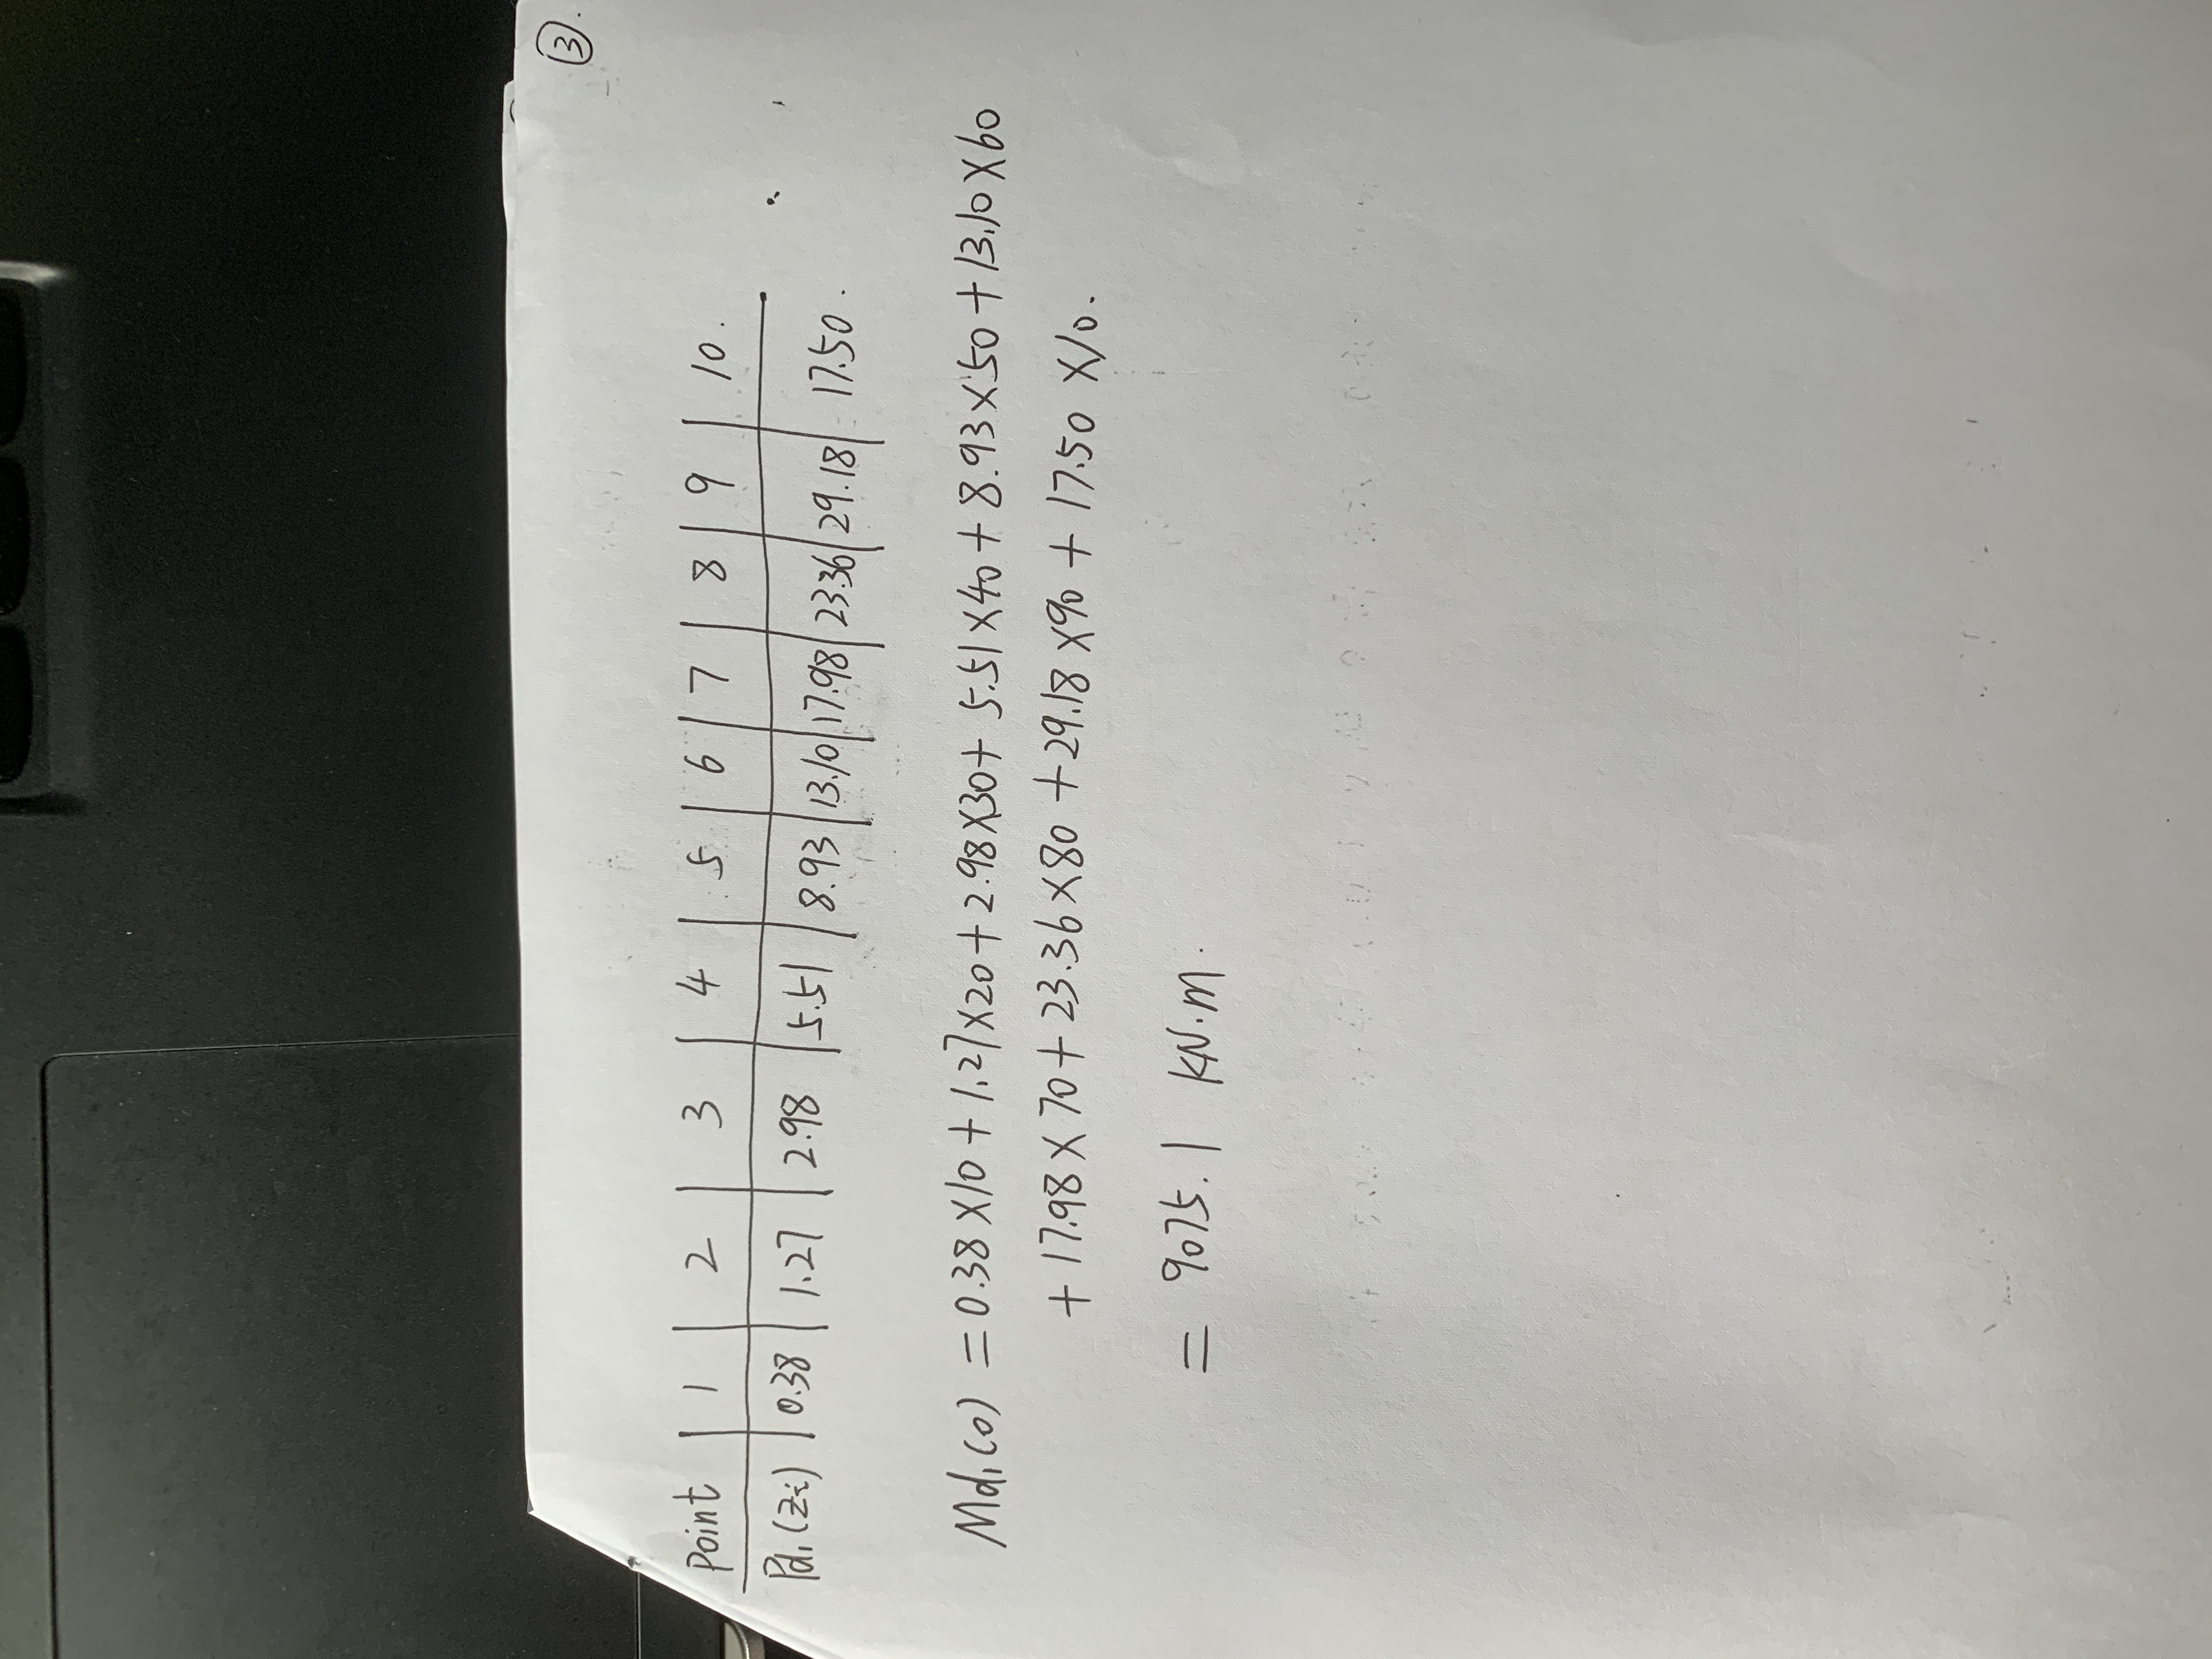 ③.
Point | 1 | 2 | 3 | 4 | 5 | 6 | 7 | 8 | 9 | 10.
Pd₁(Zi) | 0.38 | 1.27 | 2.98 | 5.51 | 8.93 | 13.10 | 17.98 | 23.36 | 29.18 | 17.50.
Md₁(0) = 0.38 × 10 + 1.27 × 20 + 2.98 × 30 + 5.51 × 40 + 8.93 × 50 + 13.10 × 60
+ 17.98 × 70 + 23.36 × 80 + 29.18 × 90 + 17.50 × 10.
= 9075.1 KN.m.